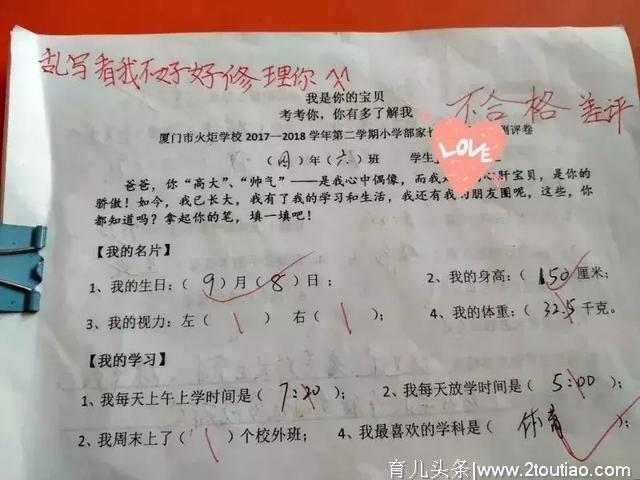 乱写看我不好好修理你
我是你的宝贝
考考你，你有多了解我
不合格 差评
LOVE
厦门市火炬学校2017—2018学年第二学期小学部家 测评卷
（四）年（六）班 学生
爸爸，你“高大”、“帅气”——是我心中偶像，而我 肝宝贝，是你的
骄傲！如今，我已长大，我有了我的学习和生活，我还有我的朋友圈呢，这些，你
都知道吗？拿起你的笔，填一填吧！
【我的名片】
1、我的生日：（ 9 ）月（ 8 ）日； 2、我的身高：（ 150 厘米；
3、我的视力：左（ ） 右（ ）； 4、我的体重：（ 32.5 千克。
【我的学习】
1、我每天上午上学时间是（ 7:20 ）； 2、我每天放学时间是（ 5:00 ）；
2、我周末上了（ ）个校外班； 4、我最喜欢的学科是（ 体育 ）；
育儿头条/www.2toutiao.com